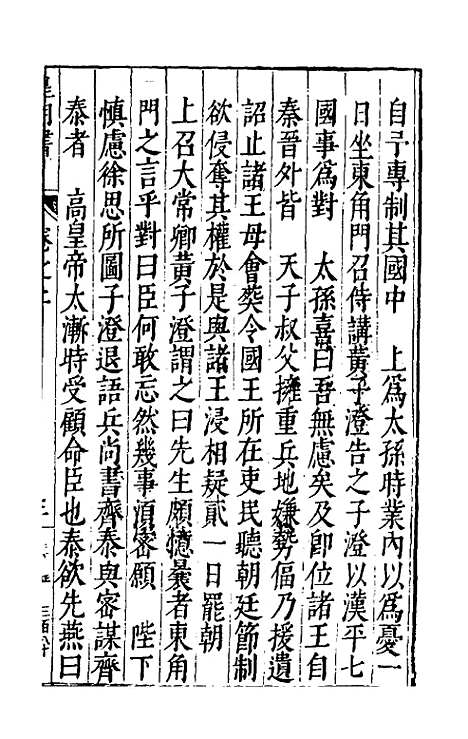 自予專制其國中　上爲太孫時業內以爲憂一
日坐東角門召侍講黃子澄告之子澄以漢平七
國事爲對　太孫喜曰吾無慮矣及卽位諸王自
秦晉外皆　天子叔父擁重兵地嫌勢偪乃援遺
詔止諸王毋會葬令國王所在吏民聽朝廷節制
欲侵奪其權於是與諸王浸相疑貳一日罷朝
上召大常卿黃子澄謂之曰先生頗憶曩者東角
門之言乎對曰臣何敢忘然幾事湏密願　陛下
慎慮徐思所圖子澄退語兵尚書齊泰與密謀齊
泰者　高皇帝太漸時受顧命臣也泰欲先燕曰
皇明書